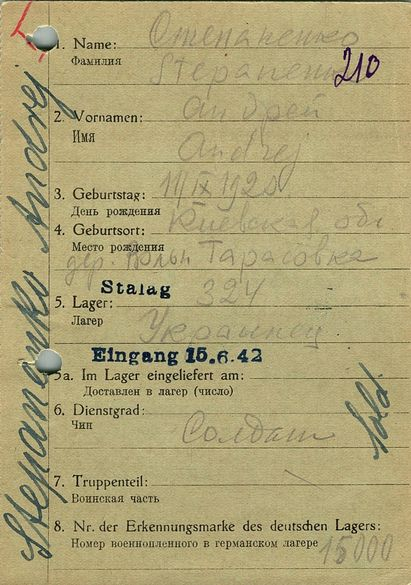 1. Name: Степаненко
Фамилия Stepanenko
210
2. Vornamen: Андрей
Имя Andrej
3. Geburtstag: 11/IX 1920
День рождения
4. Geburtsort: Киевская обл
Место рождения
дер. Тарасовка
Stalag
5. Lager: 324
Лагер
Украинец
Eingang 15.6.42
5a. Im Lager eingeliefert am:
Доставлен в лагер (число)
6. Dienstgrad: Солдат
Чин
Sold.
7. Truppenteil:
Воинская часть
8. Nr. der Erkennungsmarke des deutschen Lagers:
Номер военнопленного в германском лагере 15000
Stepanenko Andrej